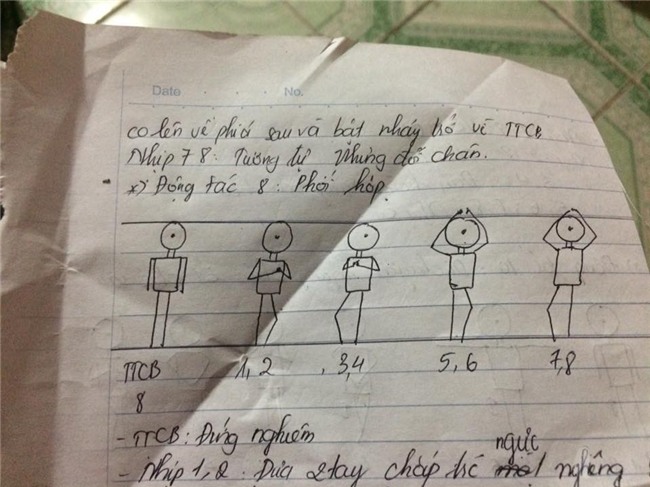 Date No.
co lên về phía sau và bật nhảy trở về TTCB
Nhịp 7 8: Tương tự nhưng đổi chân.
*) Động tác 8: Phối hợp.
TTCB 1, 2 , 3,4 5, 6 7,8
8
- TTCB: Đứng nghiêm
ngực
- Nhịp 1, 2: Đưa 2 tay chắp trc nghiêng